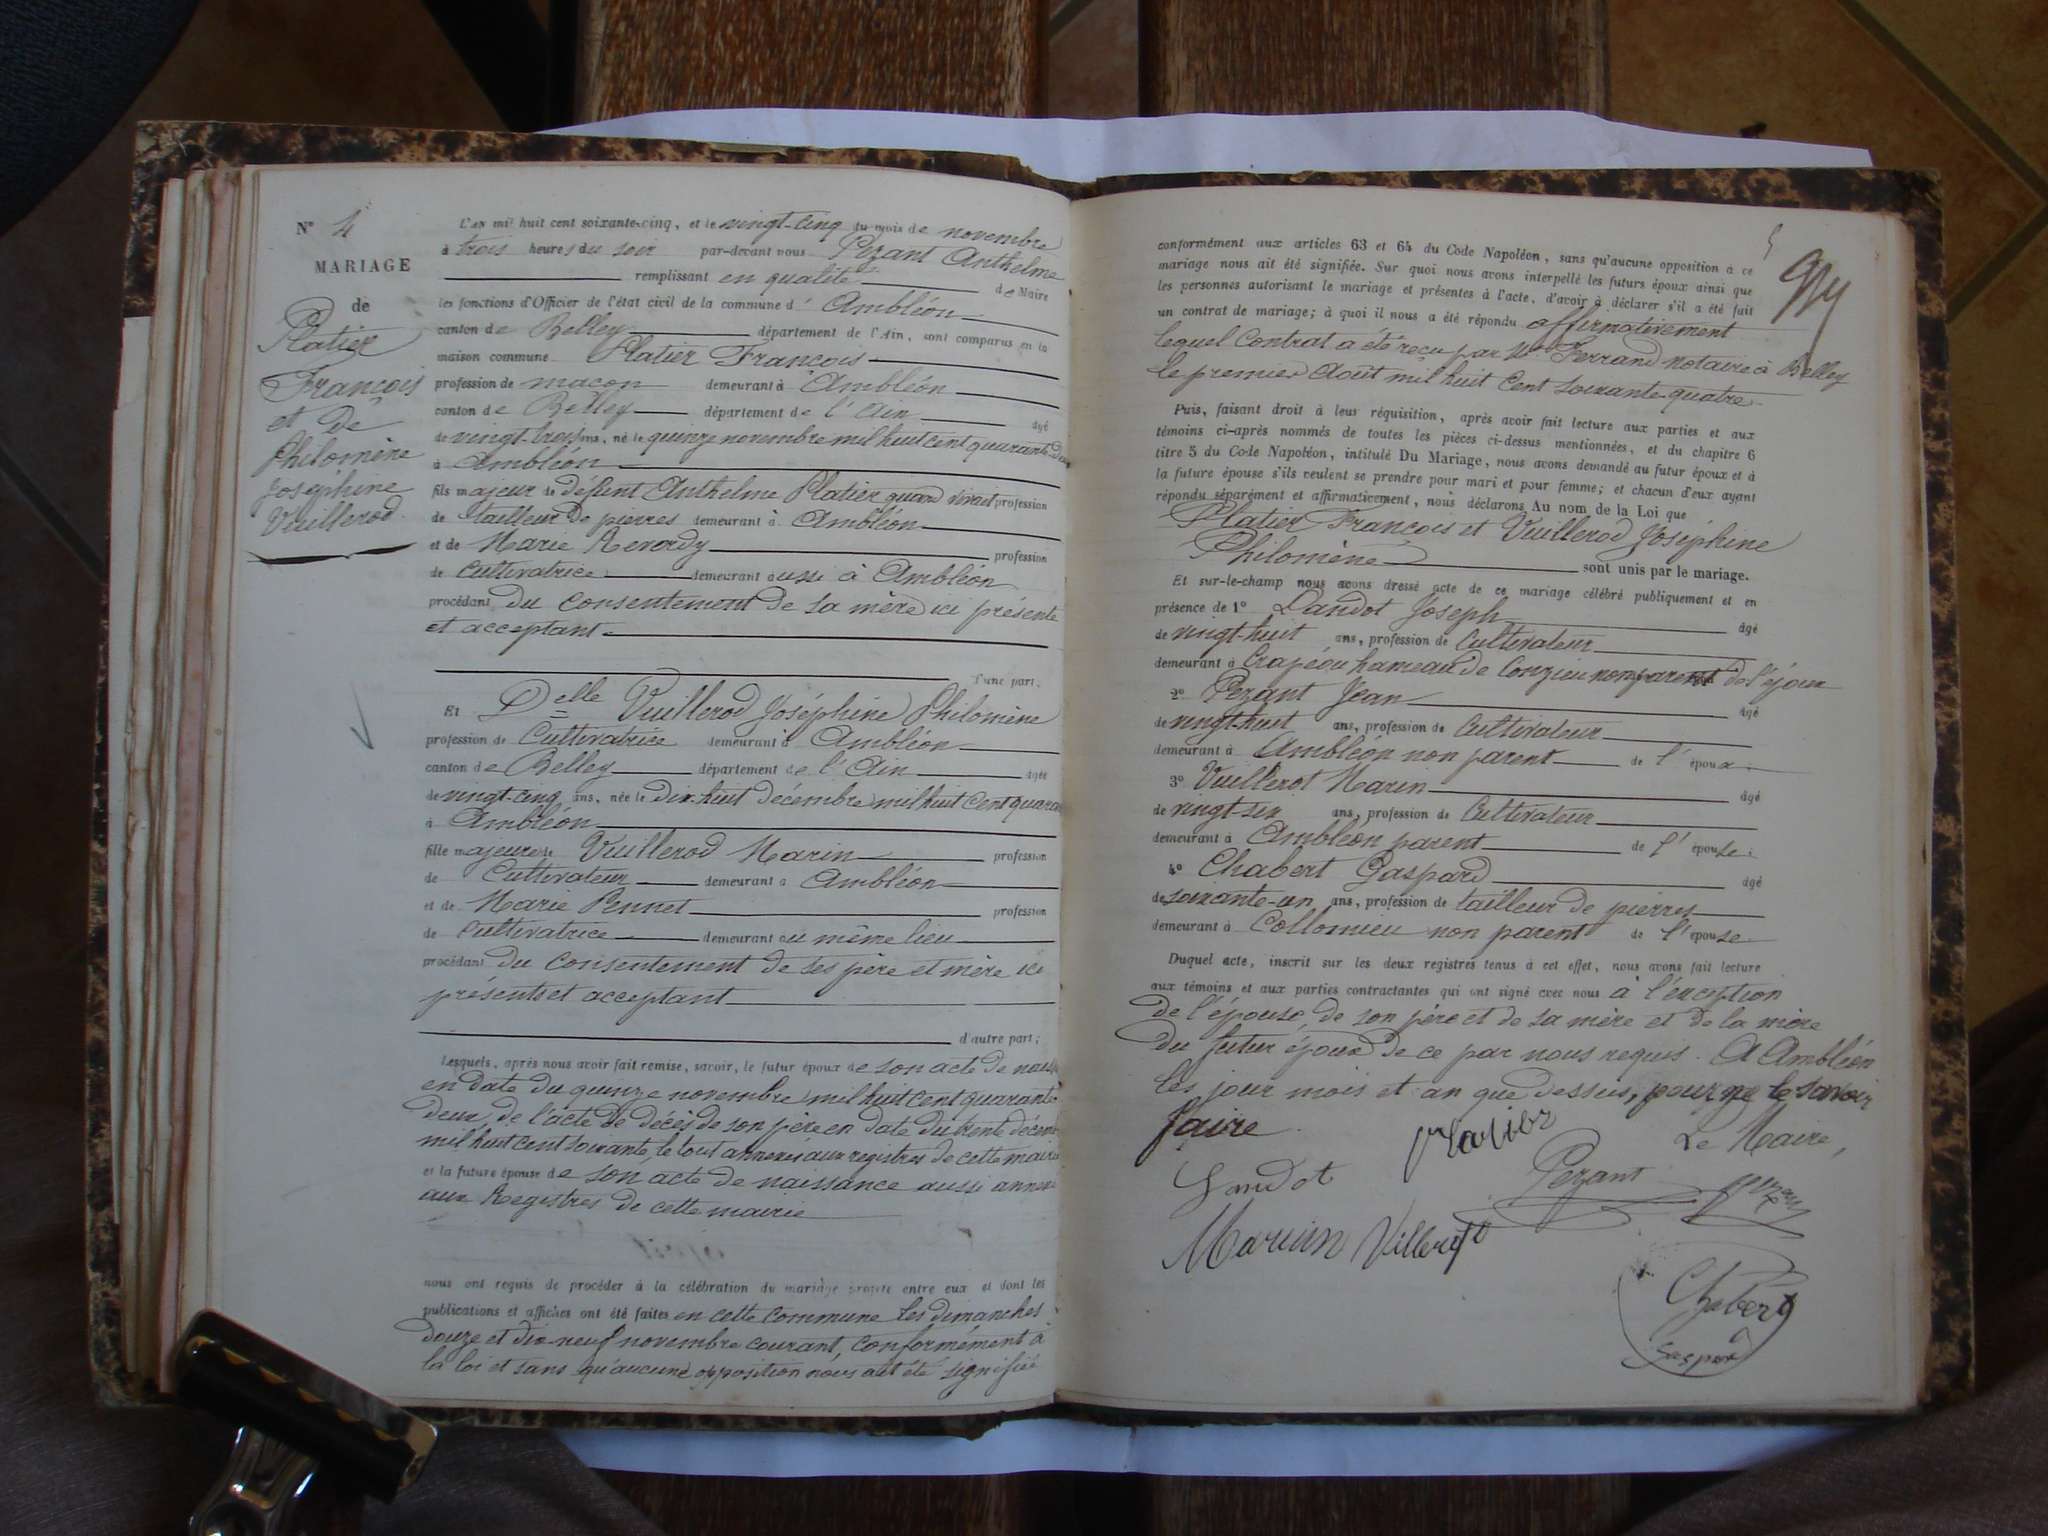 N° 4
MARIAGE
de
Platier
François
et de
Philomène
Joséphine
Vuillerod.
L'an mil huit cent soixante-cinq, et le vingt-cinq du mois de novembre
à trois heures du soir par-devant nous Pezant Anthelme
remplissant en qualité de Maire
les fonctions d'Officier de l'état civil de la commune d' Ambléon
canton de Belley département de l'Ain, sont comparus en la
maison commune Platier François
profession de maçon demeurant à Ambléon
canton de Belley département de l'Ain âgé
de vingt-trois ans, né le quinze novembre mil huit cent quarante-deux
à Ambléon
fils majeur de défunt Anthelme Platier quand vivait profession
de tailleur de pierres demeurant à Ambléon
et de Marie Revordy profession
de cultivatrice demeurant aussi à Ambléon
procédant du consentement de sa mère ici présente
et acceptant
d'une part,
Et Delle Vuillerod Joséphine Philomène
profession de Cultivatrice demeurant à Ambléon
canton de Belley département de l'Ain âgée
de vingt-cinq ans, née le dix-huit décembre mil huit cent quara
à Ambléon
fille majeure de Vuillerod Marin profession
de Cultivateur demeurant à Ambléon
et de Marie Pennet profession
de Cultivatrice demeurant au même lieu
procédant du consentement de ses père et mère ici
présents et acceptant
d'autre part;
Lesquels, après nous avoir fait remise, savoir, le futur époux de son acte de naiss
en date du quinze novembre mil huit cent quarante
deux, de l'acte de décès de son père en date du trente décem
mil huit cent soixante, le tout annexés aux registres de cette mairie
et la future épouse de son acte de naissance aussi annexé
aux Registres de cette mairie
nous ont requis de procéder à la célébration du mariage projeté entre eux et dont les
publications et affiches ont été faites en cette commune les dimanches
douze et dix-neuf novembre courant, conformément à
la loi et sans qu'aucune opposition nous ait été signifiée
5
conformément aux articles 63 et 64 du Code Napoléon, sans qu'aucune opposition à ce
mariage nous ait été signifiée. Sur quoi nous avons interpellé les futurs époux ainsi que
les personnes autorisant le mariage et présentes à l'acte, d'avoir à déclarer s'il a été fait
un contrat de mariage; à quoi il nous a été répondu affirmativement
lequel Contrat a été reçu par Me Ferrand notaire à Belley
le premier Août mil huit Cent soixante-quatre
Puis, faisant droit à leur réquisition, après avoir fait lecture aux parties et aux
témoins ci-après nommés de toutes les pièces ci-dessus mentionnées, et du chapitre 6
titre 5 du Code Napoléon, intitulé Du Mariage, nous avons demandé au futur époux et à
la future épouse s'ils veulent se prendre pour mari et pour femme; et chacun d'eux ayant
répondu séparément et affirmativement, nous déclarons Au nom de la Loi que
Platier François et Vuillerod Joséphine
Philomène sont unis par le mariage.
Et sur-le-champ nous avons dressé acte de ce mariage célébré publiquement et en
présence de 1° Landot Joseph âgé
de vingt-huit ans, profession de Cultivateur
demeurant à Crapéou hameau de Conzieu non parent de l'époux
2° Pezant Jean âgé
de vingt-huit ans, profession de Cultivateur
demeurant à Ambléon non parent de l'époux
3° Vuillerot Marin âgé
de vingt-six ans, profession de Cultivateur
demeurant à Ambléon parent de l'épouse
4° Chabert Gaspard âgé
de soixante-un ans, profession de tailleur de pierres
demeurant à Collomieu non parent de l'épouse
Duquel acte, inscrit sur les deux registres tenus à cet effet, nous avons fait lecture
aux témoins et aux parties contractantes qui ont signé avec nous à l'exception
de l'épouse, de son père et de sa mère et de la mère
du futur époux de ce par nous requis. A Ambléon
les jour mois et an que dessus, pour ne le savoir
faire.
Platier
Le Maire,
Landot
Pezant
Marium Villerot
Chabert
Gaspard